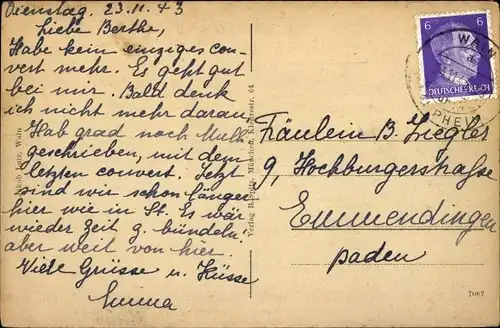 Dienstag. 23.11.43
Liebe Berthe,
Habe kein einziges con-
vert mehr. Es geht gut
bei mir. Bald denk
ich nicht mehr daran
Hab grad noch Mulh.
geschrieben, mit dem
letzten convert. Jetzt
sind wir schon länger
hier wie in St. Es wär
wieder Zeit z. bündeln.
aber weit von hier.
Viele Grüsse u. Küsse
Emma
Verlag München, 64
6 6
DEUTSCHES REICH
WALN
Fräulein B. Ziegler
9, Hochburgerstraße
Emmendingen
Baden
7087